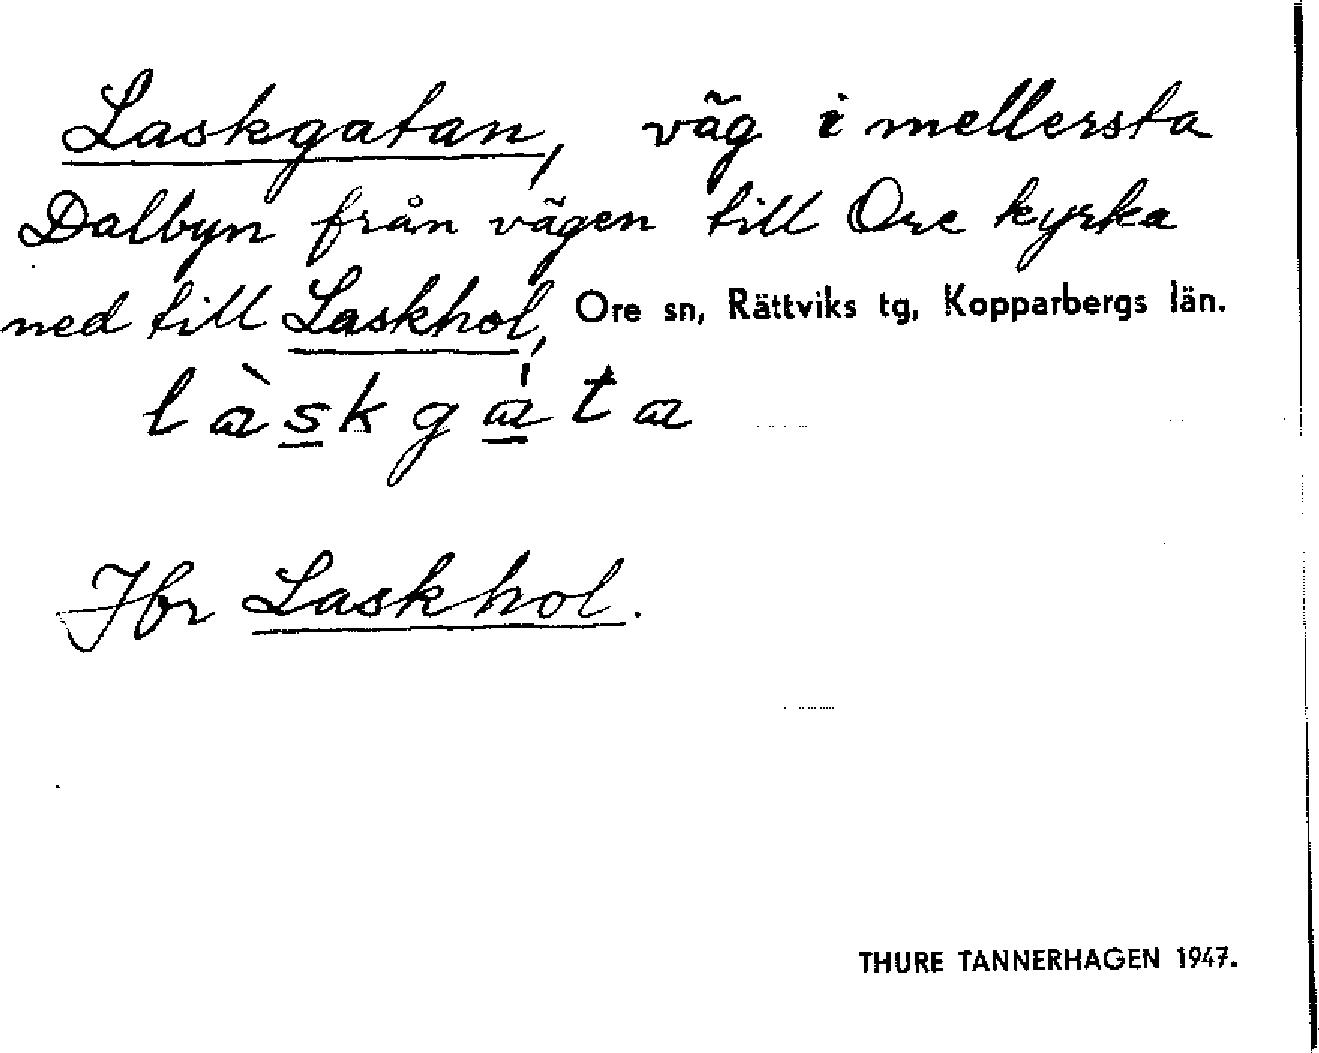 Laskgatan, väg i mellersta
Dalbyn från vägen till Ore kyrka
ned till Laskhol, Ore sn, Rättviks tg, Kopparbergs län.
làskgáta
Jfr Laskhol.
THURE TANNERHAGEN 1947.